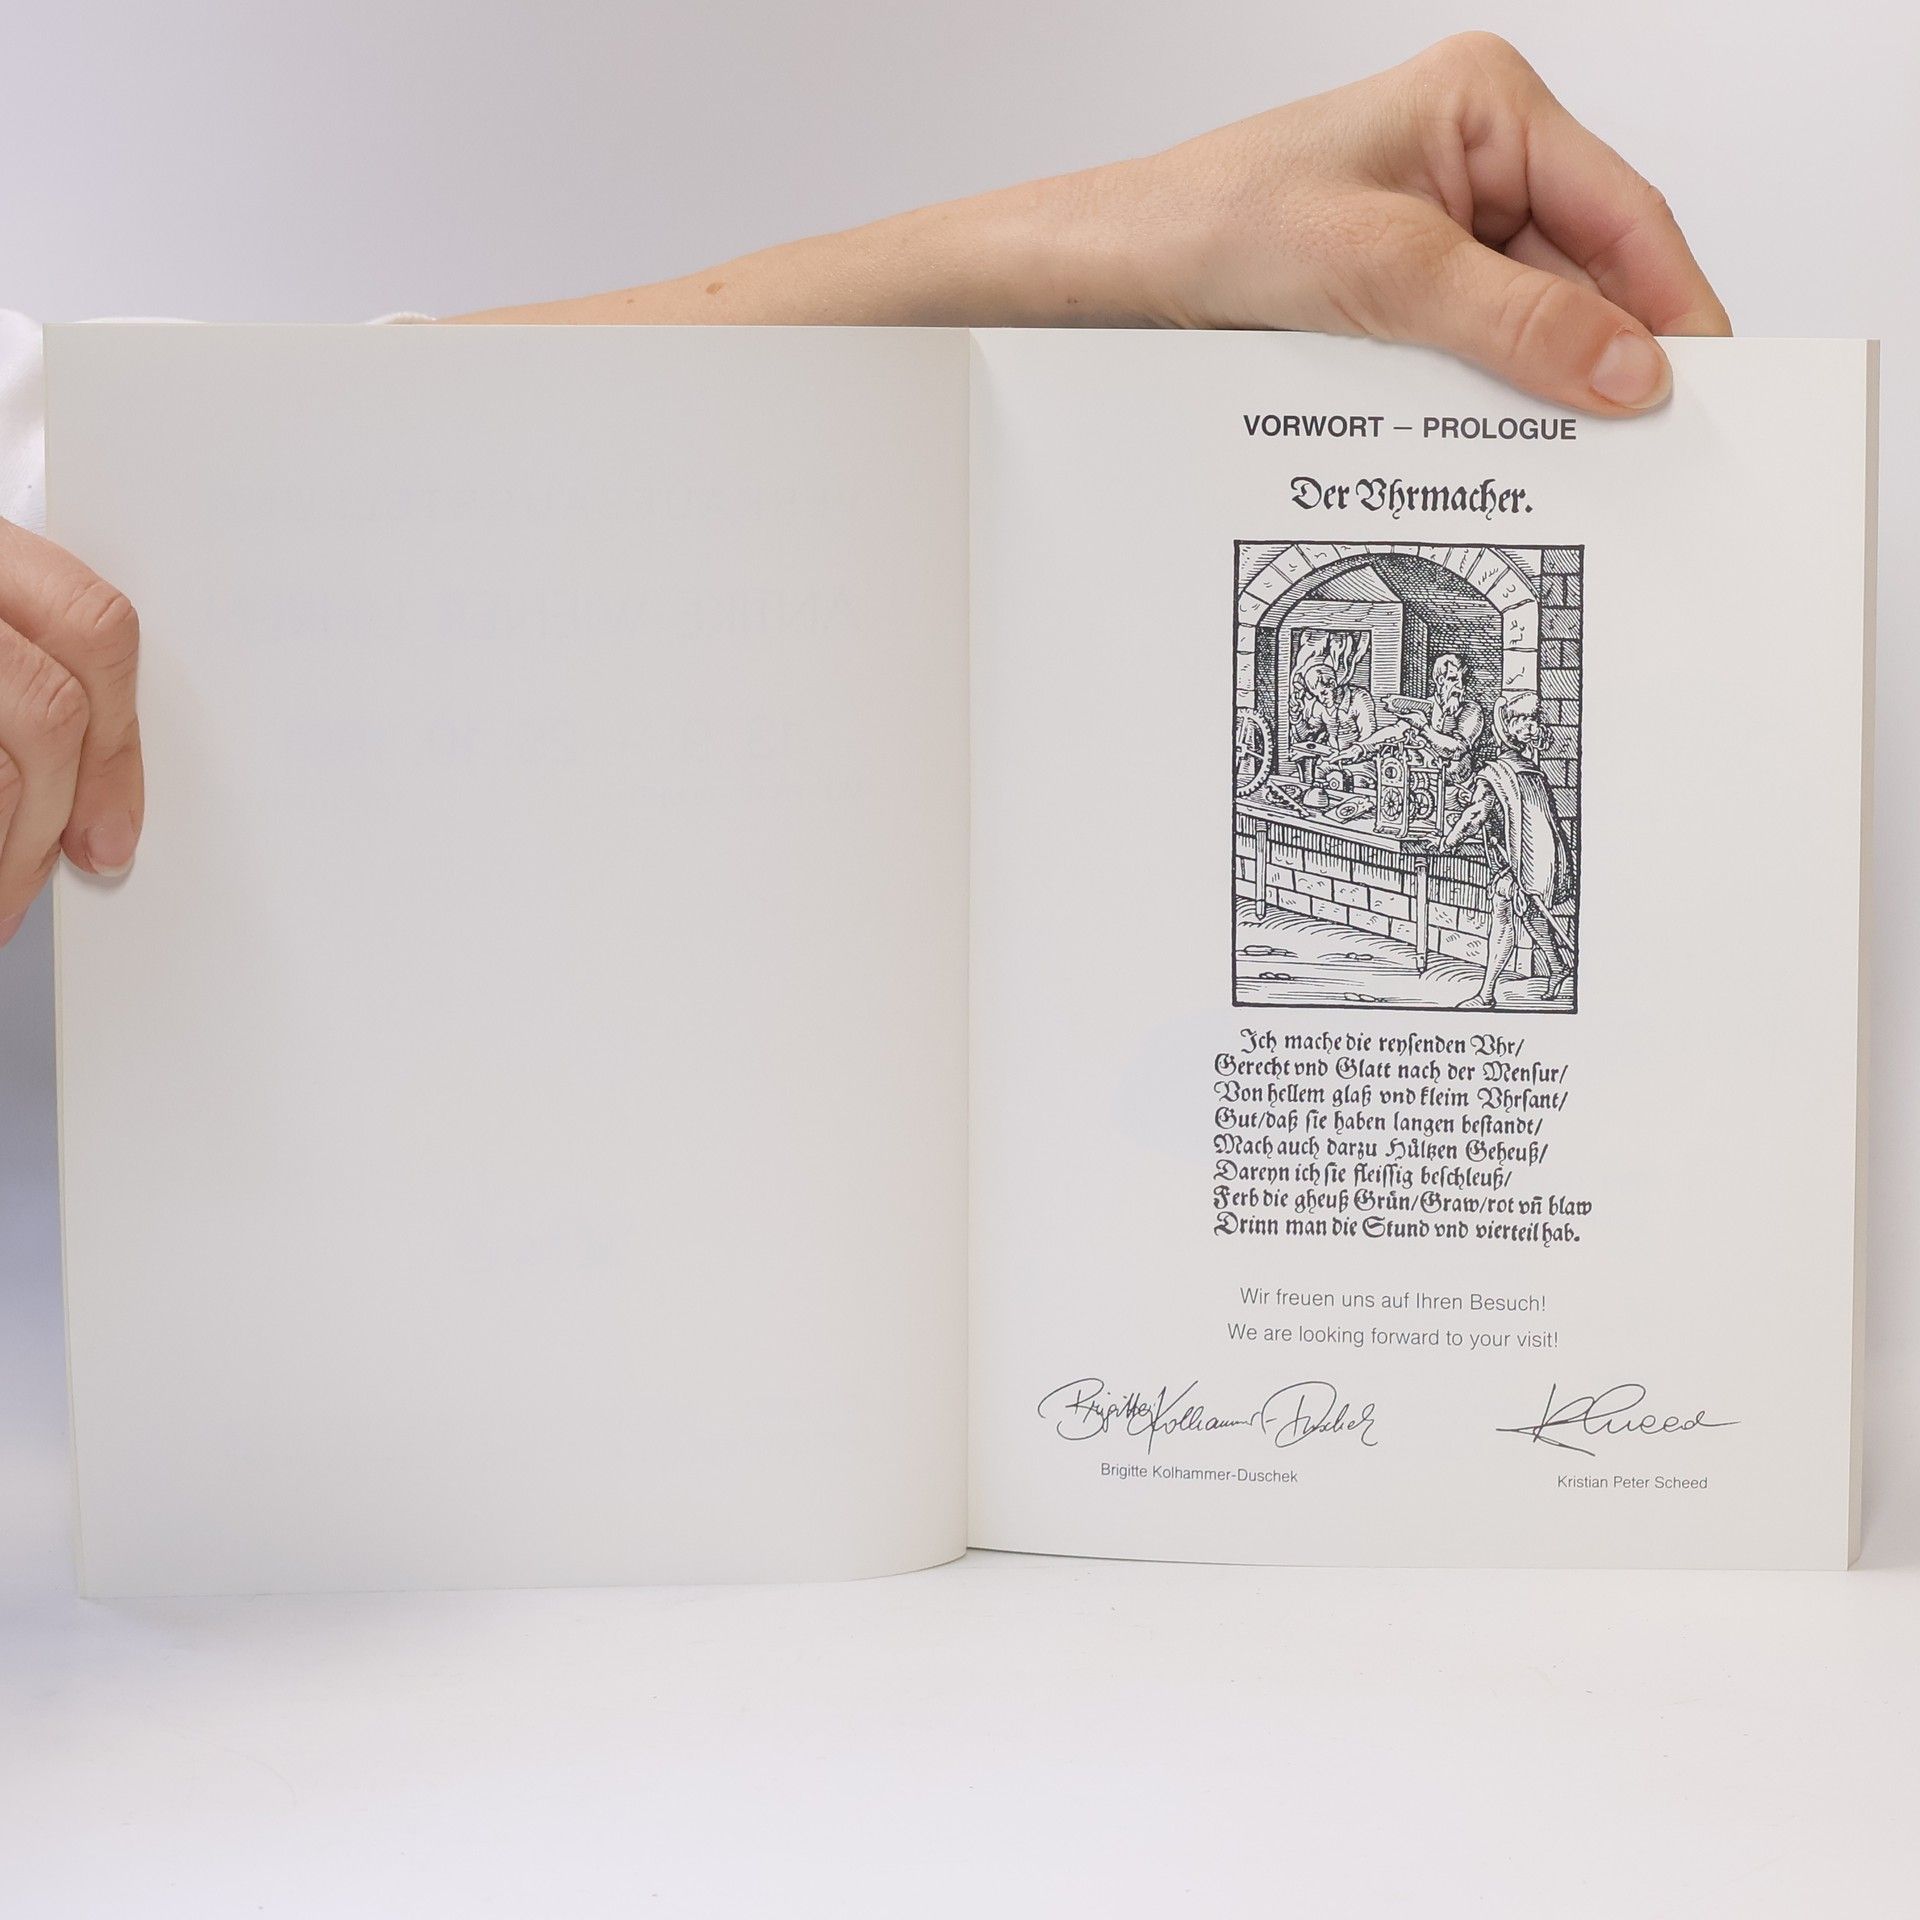 VORWORT – PROLOGUE
Der Vhrmacher.
Ich mache die reysenden Vhr/
Gerecht vnd Glatt nach der Mensur/
Von hellem glaß vnd kleim Vhrsant/
Gut/daß sie haben langen bestandt/
Mach auch darzu Hůltzen Geheuß/
Dareyn ich sie fleissig beschleuß/
Ferb die gheuß Grün/Graw/rot vñ blaw
Drinn man die Stund vnd vierteil hab.
Wir freuen uns auf Ihren Besuch!
We are looking forward to your visit!
Brigitte Kolhammer-Duschek KScheed
Brigitte Kolhammer-Duschek Kristian Peter Scheed